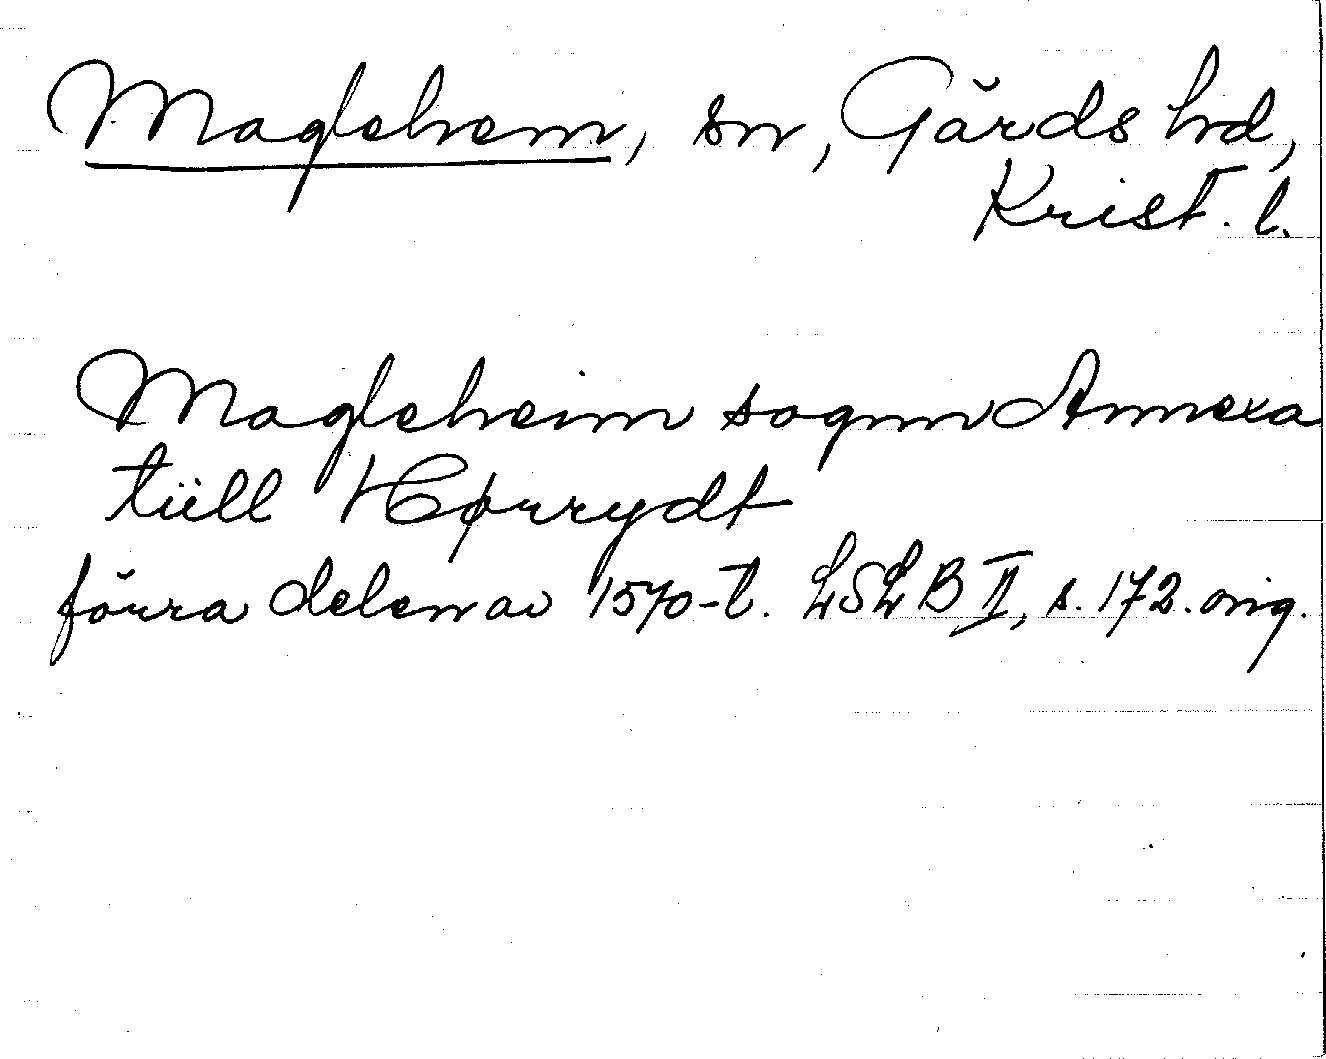 Maglehem, sn, Gärds hd,
Krist. l.
Magleheim sognn Annexa
tiill Hørrydt
förra delen av 1570-t. LSLB II, s. 172. orig.